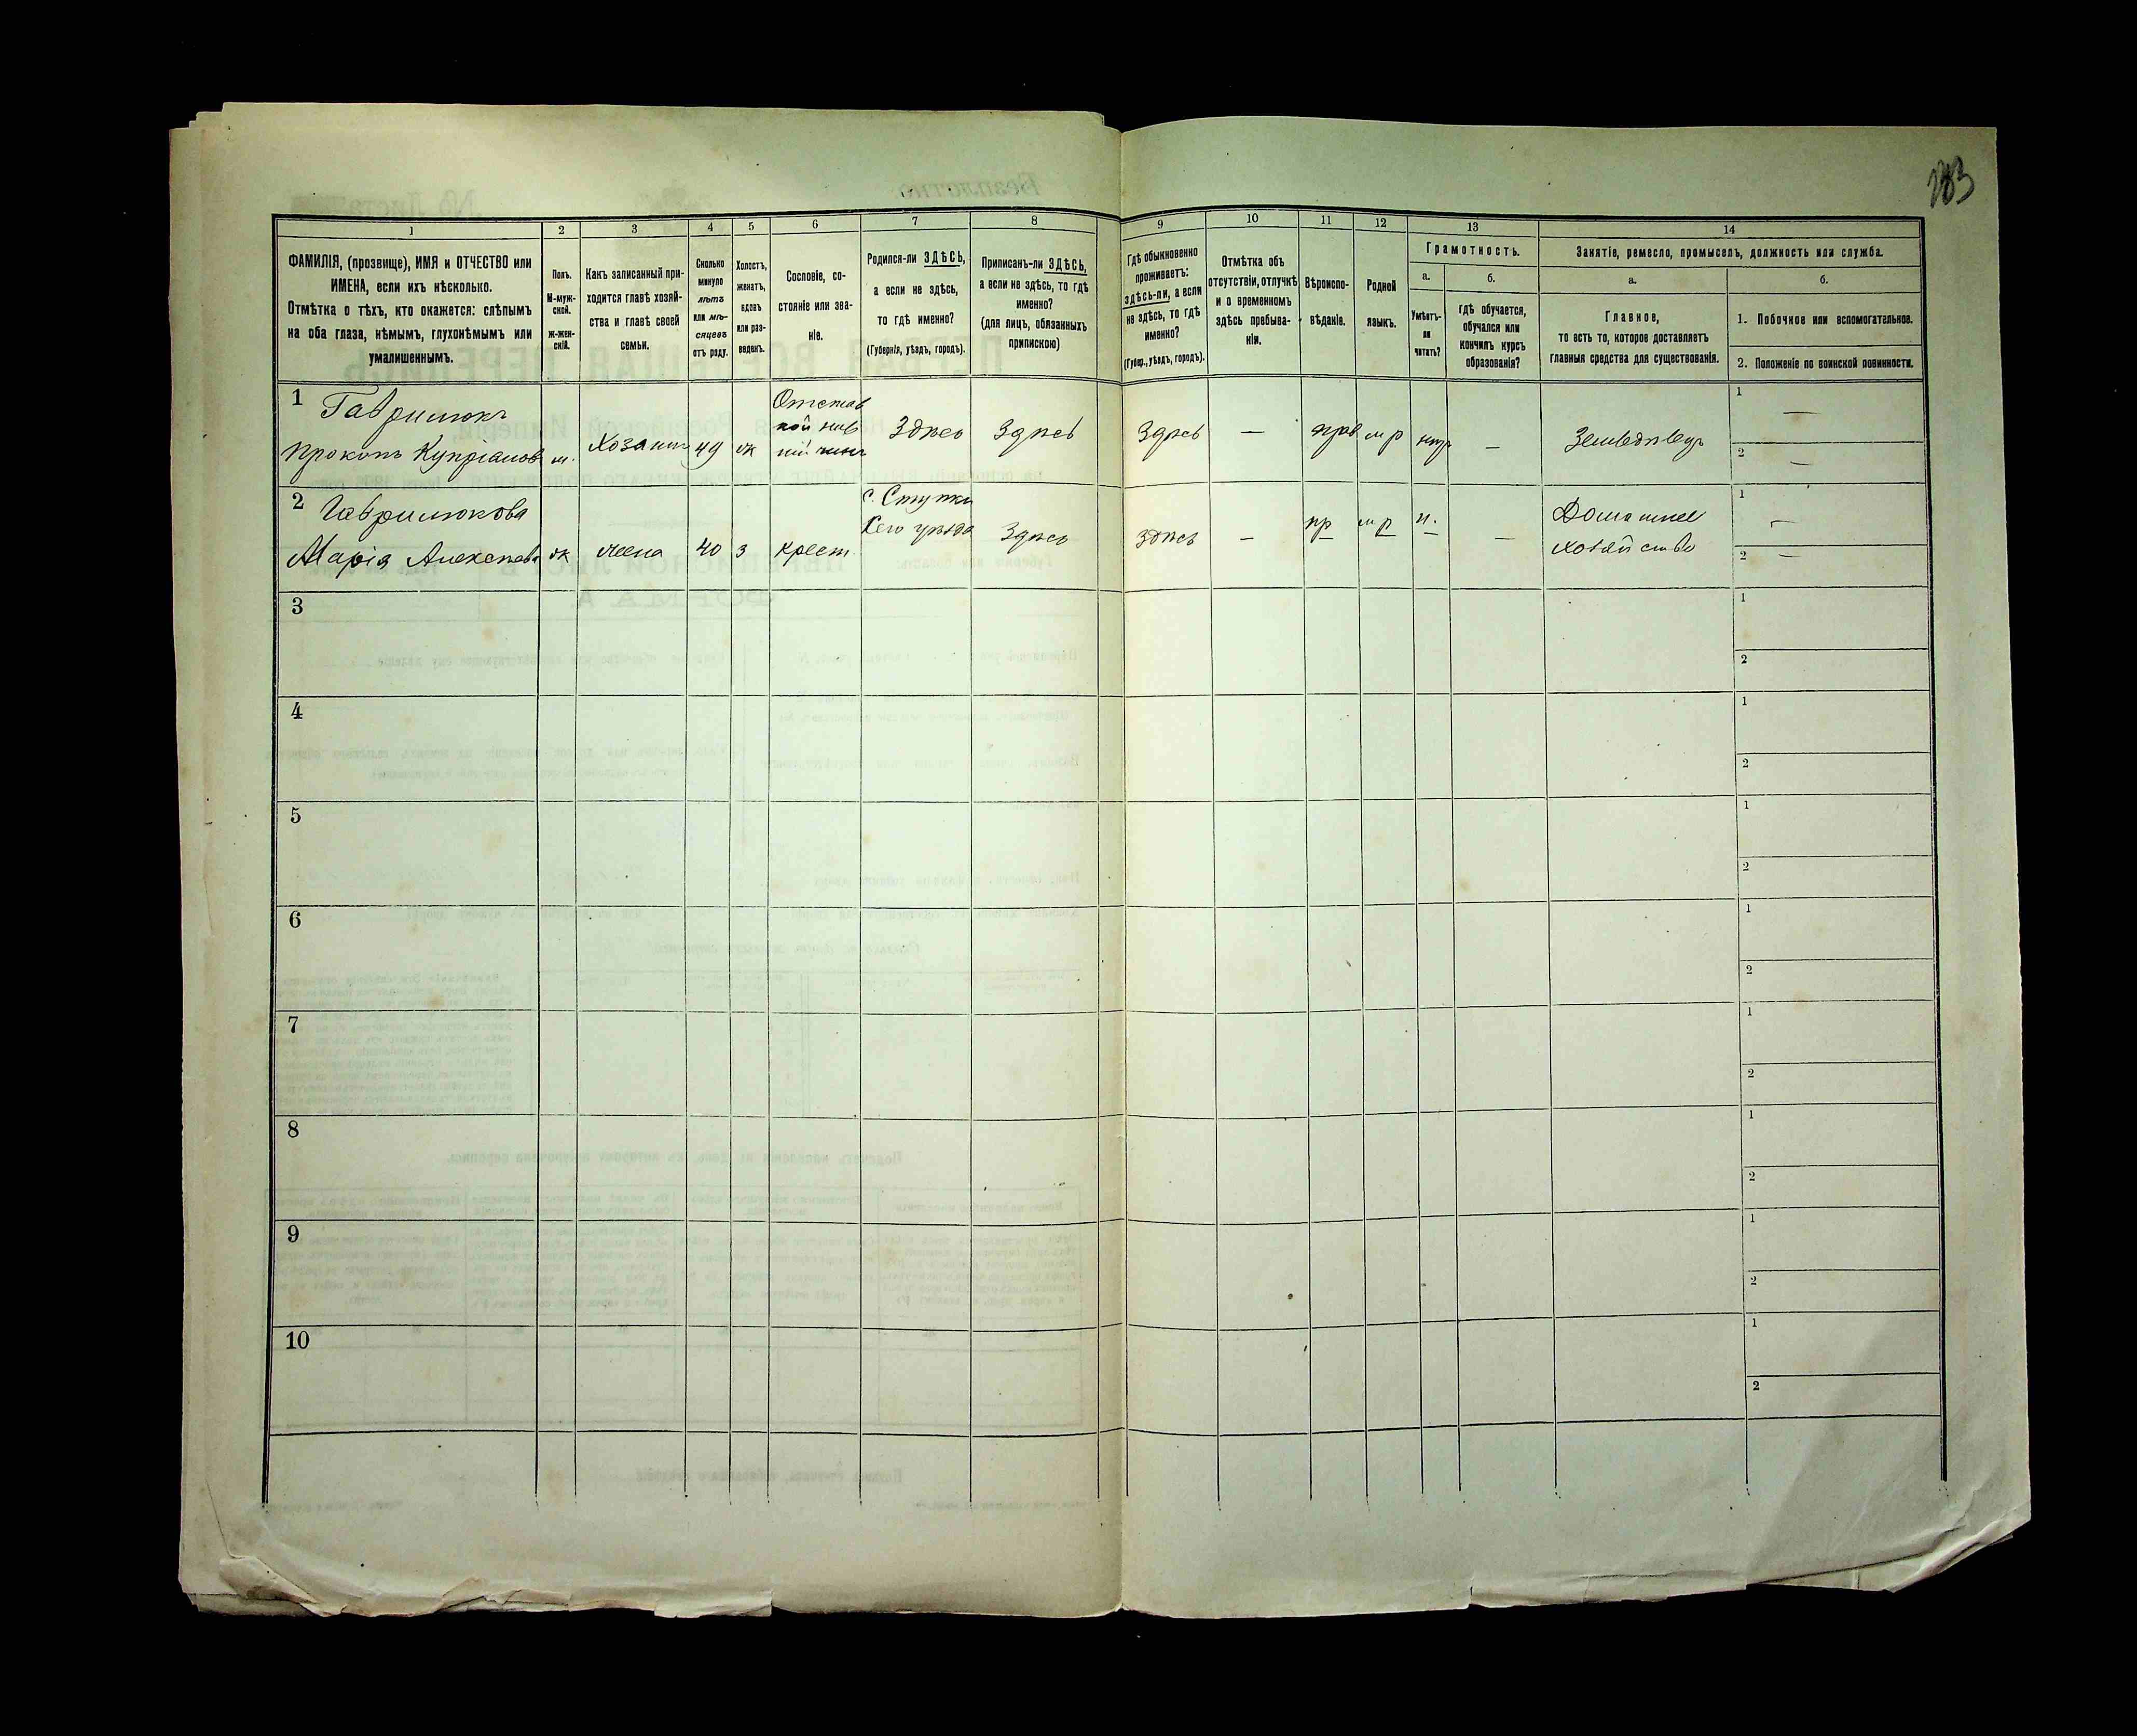 183
1
2
3
4
5
6
7
8
9
10
11
12
13
14
ФАМИЛІЯ, (прозвище), ИМЯ и ОТЧЕСТВО или
ИМЕНА, если ихъ нѣсколько.
Отмѣтка о тѣхъ, кто окажется: слѣпымъ
на оба глаза, нѣмымъ, глухонѣмымъ или
умалишеннымъ.
Полъ.
М-муж-
ской.
ж-жен-
скій.
Какъ записанный при-
ходится главѣ хозяй-
ства и главѣ своей
семьи.
Сколько
минуло
лѣтъ
или мѣ-
сяцевъ
отъ роду.
Холостъ,
женатъ,
вдовъ
или раз-
веденъ.
Сословіе, со-
стояніе или зва-
ніе.
Родился-ли ЗДѢСЬ,
а если не здѣсь,
то гдѣ именно?
(Губернія, уѣздъ, городъ).
Приписанъ-ли ЗДѢСЬ,
а если не здѣсь, то гдѣ
именно?
(для лицъ, обязанныхъ
припискою)
Гдѣ обыкновенно
проживаетъ:
здѣсь-ли, а если
не здѣсь, то гдѣ
именно?
(Губер., уѣздъ, городъ).
Отмѣтка объ
отсутствіи, отлучкѣ
и о временномъ
здѣсь пребыва-
ніи.
Вѣроиспо-
вѣданіе.
Родной
языкъ.
Грамотность.
а.
б.
Умѣетъ-
ли
читать?
Гдѣ обучается,
обучался или
кончилъ курсъ
образованія?
Занятіе, ремесло, промыселъ, должность или служба.
а.
б.
Главное,
то есть то, которое доставляетъ
главныя средства для существованія.
1. Побочное или вспомогательное.
2. Положеніе по воинской повинности.
1
Гаврилюкъ
Прокопъ Купріановъ
м.
Хозяинъ
49
ж
Отстав
ной ниж
ній чинъ
Здѣсь
Здѣсь
Здѣсь
—
прав
мр
нтр
—
Земледѣлецъ
1
—
2
—
2
Гаврилюкова
Марія Алексѣева
ж
жена
40
з
крест.
с. Ступки
сего уѣзда
Здѣсь
здѣсь
—
пр
мр
н.
—
Домашнее
хозяйство
1
—
2
—
3
1
2
4
1
2
5
1
2
6
1
2
7
1
2
8
1
2
9
1
2
10
1
2